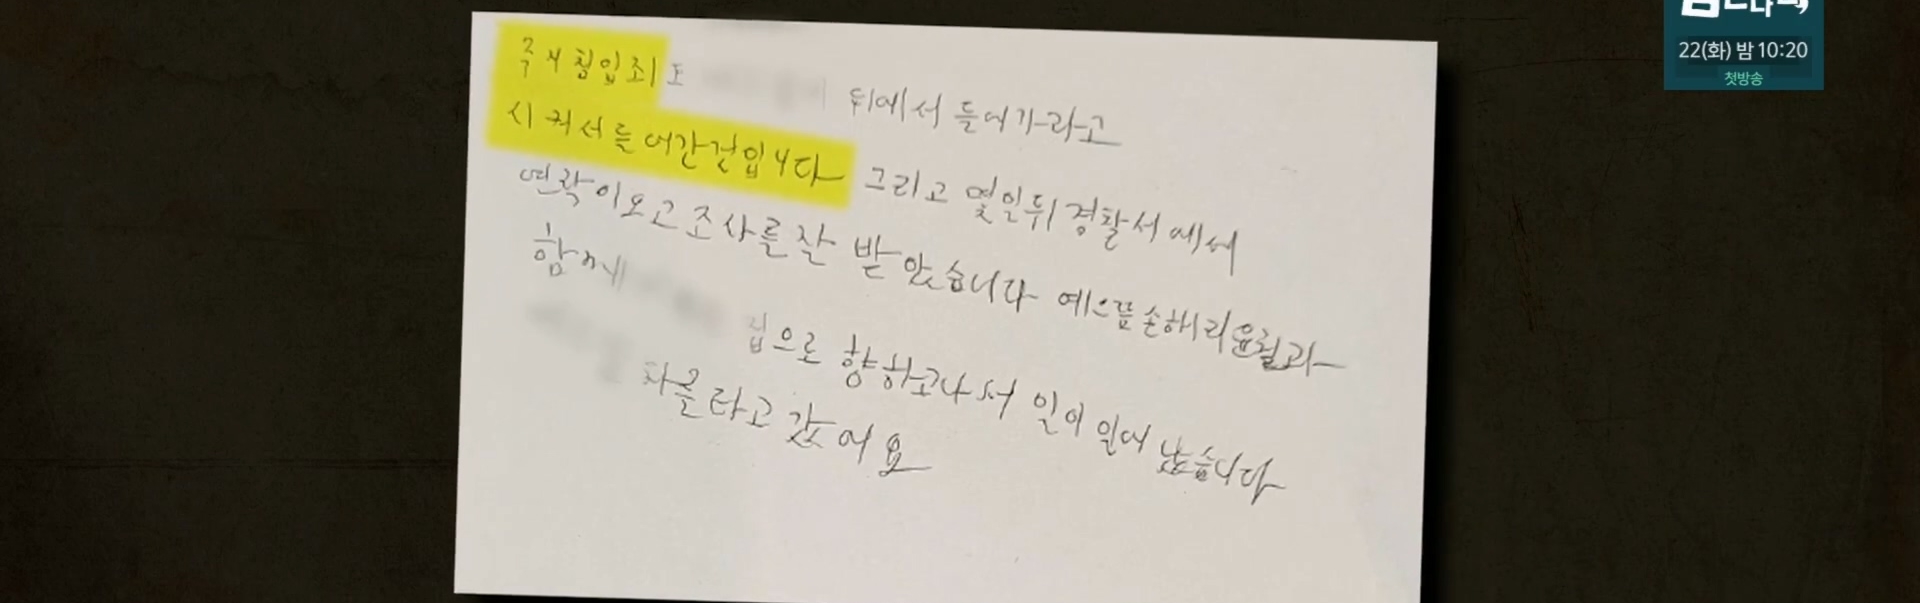 22(화) 밤 10:20
첫방송
주거침입죄도 뒤에서 들어가라고
시켜서들어간건입니다 그리고 몇일뒤 경찰서에서
연락이오고 조사를 잘 받았습니다 예스쁨손해리윤월과
함께 집으로 향하고나서 일이 일어났습니다
차를타고 갔어요